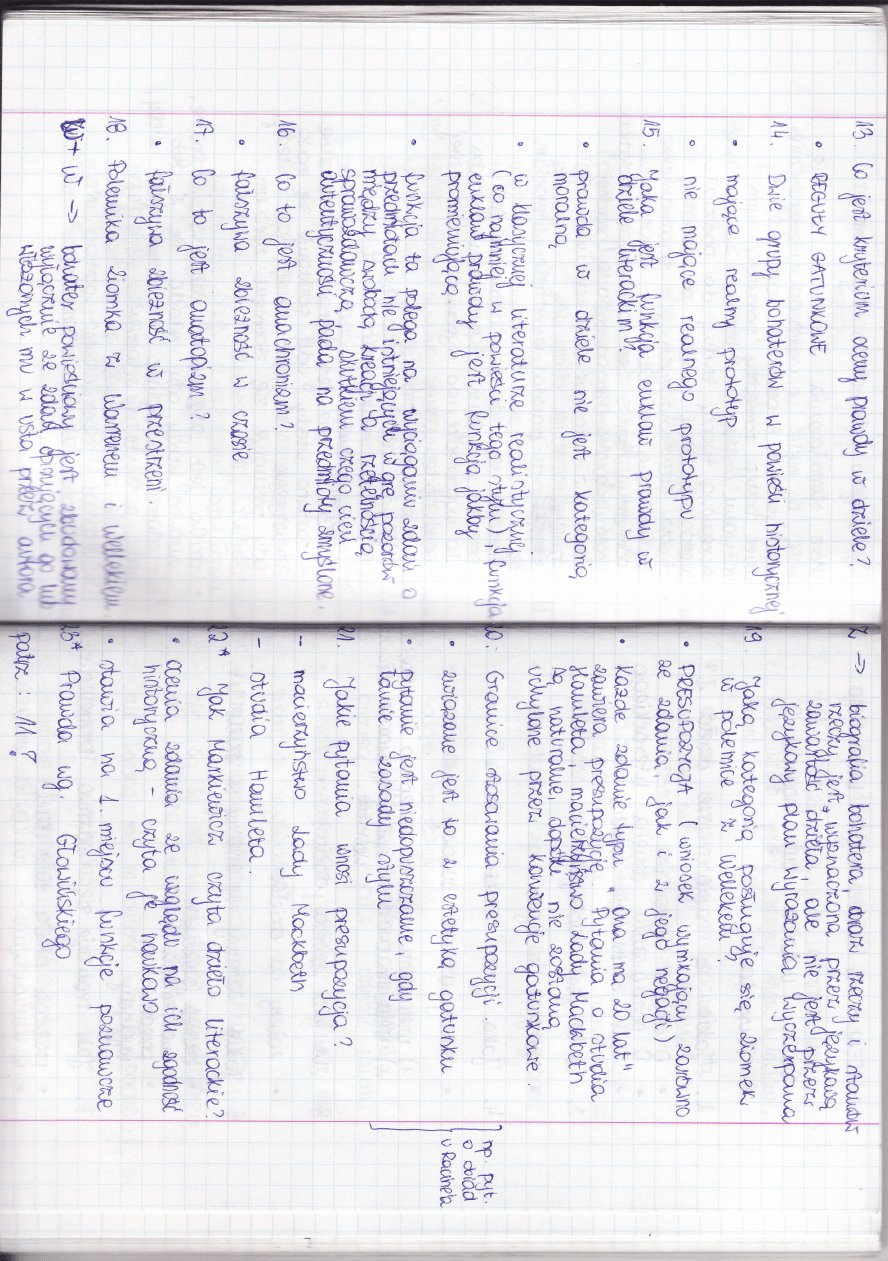 13. Co jest kryterium oceny prawdy w dziele?
• REGUŁY GATUNKOWE
14. Dwie grupy bohaterów w powieści historycznej
• mające realny prototyp
• nie mające realnego prototypu
15. Jaka jest funkcja enklaw prawdy w
dziele literackim?
• prawda w dziele nie jest kategorią
moralną
• w klasycznej literaturze realistycznej
(co najmniej w powieści tego stylu), funkcja
enklaw prawdy jest funkcją jakby
promieniującą.
• funkcja ta polega na wciąganiu zdań o
przedmiotach nie istniejących w grę pozorów
między swobodą kreacji a rzetelnością
sprawozdawczą, skutkiem czego cień
autentyczności pada na przedmioty zmyślone.
16. Co to jest anachronizm?
• fałszywa zbieżność w czasie
17. Co to jest anatopizm?
• fałszywa zbieżność w przestrzeni.
18. Polemika Ziomka z Warrenem i Wellekiem
W + W → bohater powieściowy jest zbudowany
wyłącznie ze zdań opisujących go lub
włożonych mu w usta przez autora
Z → biografia bohatera, dnoża rzeczy i stanów
rzeczy jest wyznaczona przez językową
zawartość dzieła, ale nie jest przez
językowy plan wyrażania wyczerpana
19. Jaką kategorią posługuje się Ziomek
w polemice z Wellekem?
• PRESUPOZYCJA (wniosek wynikający zarówno
ze zdania, jak i z jego negacji)
• każde zdanie typu "Ona ma 20 lat"
zawiera presupozycje. Pytania o studia
Hamleta, macierzyństwo Lady Mackbeth
są naturalne, dopóki nie zostaną
uchylone przez konwencje gatunkowe.
20. Granice stosowania presupozycji.
• związane jest to z estetyką gatunku
• pytanie jest niedopuszczalne, gdy
łamie zasady stylu
np. pyt.
o obiad
u Racine'a
21. Jakie pytania wnosi presupozycja?
- macierzyństwo Lady Mackbeth
- studia Hamleta.
22* Jak Markiewicz czyta dzieło literackie?
• ocenia zdania ze względu na ich zgodność
historyczną - czyta je naukowo
• stawia na 1 miejscu funkcje poznawcze
23* Prawda wg. Głowińskiego
patrz: 11?